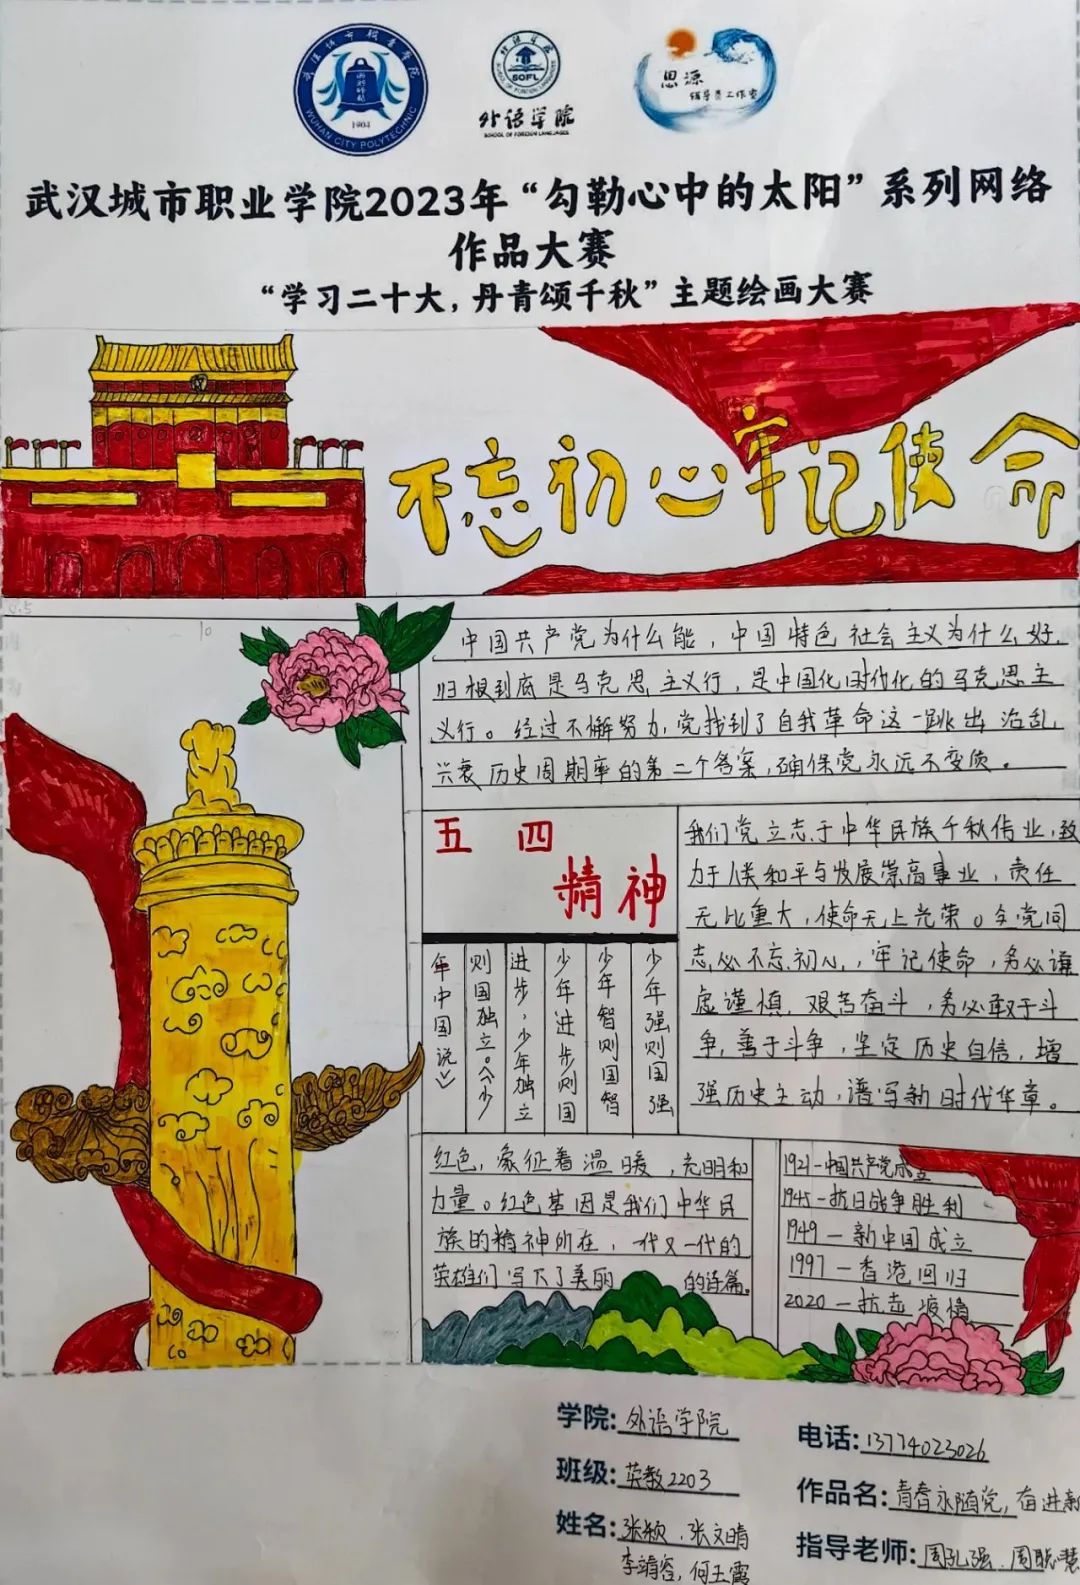 武汉城市职业学院
WUHAN CITY POLYTECHNIC
1904
外语学院
SOFL
SCHOOL OF FOREIGN LANGUAGES
外语学院
SCHOOL OF FOREIGN LANGUAGES
思源
辅导员工作室
武汉城市职业学院2023年“勾勒心中的太阳”系列网络
作品大赛
“学习二十大，丹青颂千秋”主题绘画大赛
不忘初心牢记使命
中国共产党为什么能，中国特色社会主义为什么好，
归根到底是马克思主义行，是中国化时代化的马克思主
义行。经过不懈努力，党找到了自我革命这一跳出治乱
兴衰历史周期率的第二个答案，确保党永远不变质。
五四
精神
少年强则国强
少年智则国智
少年进步则国
进步，少年独立
则国独立。《少
年中国说》
我们党立志于中华民族千秋伟业，致
力于人类和平与发展崇高事业，责任
无比重大，使命无上光荣。全党同
志必不忘初心，牢记使命，务必谦
虚谨慎，艰苦奋斗，务必敢于斗
争，善于斗争，坚定历史自信，增
强历史主动，谱写新时代华章。
红色，象征着温暖，光明和
力量。红色基因是我们中华民
族的精神所在，一代又一代的
英雄们写下了美丽的诗篇。
1921-中国共产党成立
1945-抗日战争胜利
1949-新中国成立
1997-香港回归
2020-抗击疫情
学院：外语学院
班级：英教2203
姓名：张颖、张文晴
李靖容，何玉露
电话：13774023026
作品名：青春永随党，奋进新
指导老师：周孔强 周聪慧